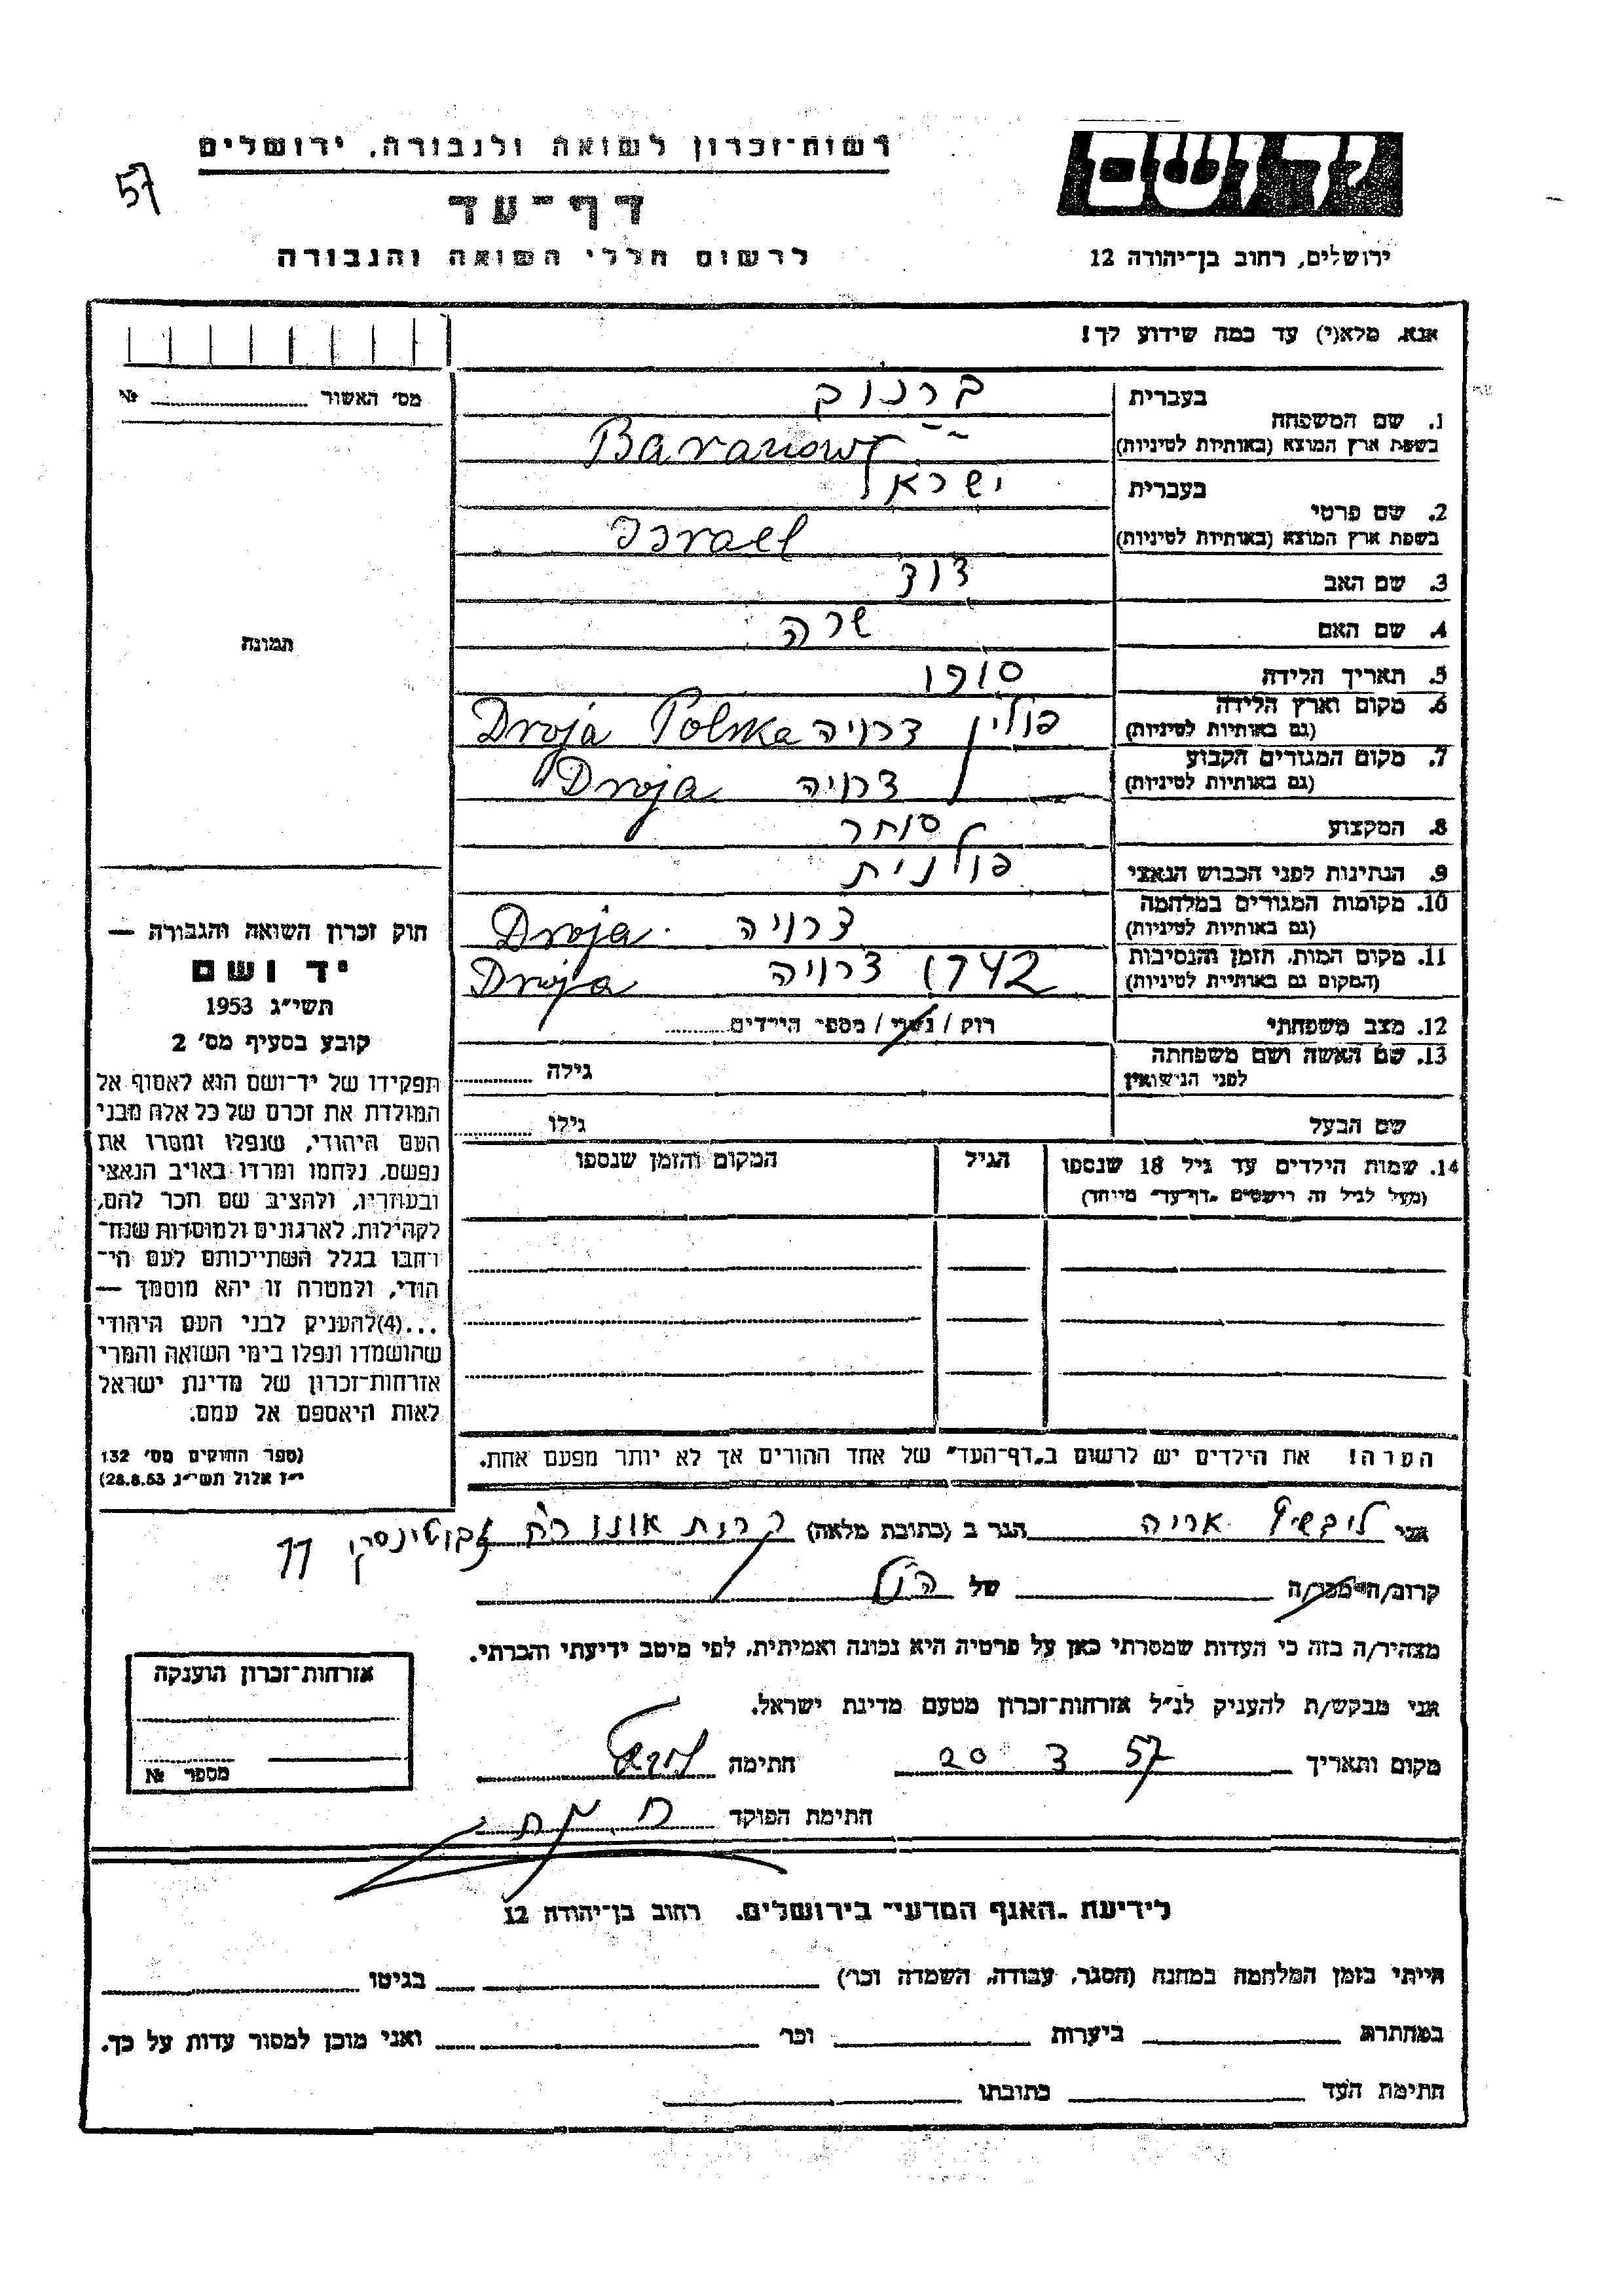 יד ושם
ירושלים, רחוב בן־יהודה 12
רשות־זכרון לשואה ולגבורה, ירושלים
דף־עד
לרשום חללי השואה והגבורה
57
אנא, מלא(י) עד כמה שידוע לך!
מס׳ האשור № 
תמונה
1. שם המשפחה בעברית
בשפת ארץ המוצא (באותיות לטיניות) Baranow
2. שם פרטי בעברית ישראל
בשפת ארץ המוצא (באותיות לטיניות) Israel
3. שם האב דוד
4. שם האם שרה
5. תאריך הלידה
6. מקום וארץ הלידה (גם באותיות לטיניות) פולין דרויה Droja Polska
7. מקום המגורים הקבוע (גם באותיות לטיניות) דרויה Droja
8. המקצוע סוחר
9. הנתינות לפני הכבוש הנאצי פולנית
10. מקומות המגורים במלחמה (גם באותיות לטיניות) דרויה Droja
11. מקום המות, הזמן והנסיבות (המקום גם באותיות לטיניות) 1942 דרויה Droja
12. מצב משפחתי רוק / נשוי / מספר הילדים
13. שם האשה ושם משפחתה לפני הנישואין גילה
שם הבעל גילו
14. שמות הילדים עד גיל 18 שנספו הגיל המקום והזמן שנספו
(מעל לגיל זה רישמים „דף־עד״ מיוחד)
הערה! את הילדים יש לרשום ב„דף־העד״ של אחד ההורים אך לא יותר מפעם אחת.
חוק זכרון השואה והגבורה —
יד ושם
תשי״ג 1953
קובע בסעיף מס׳ 2
תפקידו של יד־ושם הוא לאסוף אל
המולדת את זכרם של כל אלה מבני
העם היהודי, שנפלו ומסרו את
נפשם, נלחמו ומרדו באויב הנאצי
ובעוזריו, ולהציב שם וזכר להם,
לקהילות, לארגונים ולמוסדות שנח־
רבו בגלל השתייכותם לעם הי־
הודי, ולמטרה זו יהא מוסמך —
...(4)להעניק לבני העם היהודי
שהושמדו ונפלו בימי השואה והמרי
אזרחות־זכרון של מדינת ישראל
לאות היאספם אל עמם.
(ספר החוקים מס׳ 132
י״ז אלול תשי״ג 28.8.53)
אני ליבשיץ אריה הגר ב (כתובת מלאה) קרית אונו רח׳ ז׳בוטינסקי 77
קרוב/ה־מכר/ה של הנ״ל
מצהיר/ה בזה כי העדות שמסרתי כאן על פרטיה היא נכונה ואמיתית, לפי מיטב ידיעתי והכרתי.
אני מבקש/ת להעניק לנ״ל אזרחות־זכרון מטעם מדינת ישראל.
מקום ותאריך 20 3 57 חתימה
חתימת הפוקד
אזרחות־זכרון הוענקה
מספר №
לידיעת „האגף המדעי״ בירושלים, רחוב בן־יהודה 12
הייתי בזמן המלחמה במחנה (הסגר, עבודה, השמדה וכר׳) בגיטו
במחתרת ביערות וכר׳ ואני מוכן למסור עדות על כך.
חתימת העד כתובתו